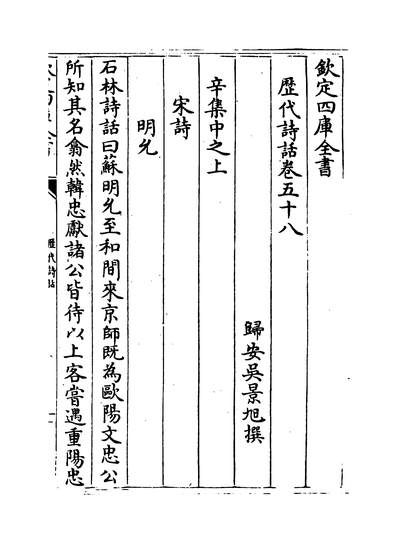 欽定四庫全書
歴代詩話卷五十八
歸安吳景旭撰
辛集中之上
宋詩
明允
石林詩話曰蘇明允至和間來京師既為歐陽文忠公
所知其名翕然韓忠獻諸公皆待以上客嘗遇重陽忠
歴代詩話